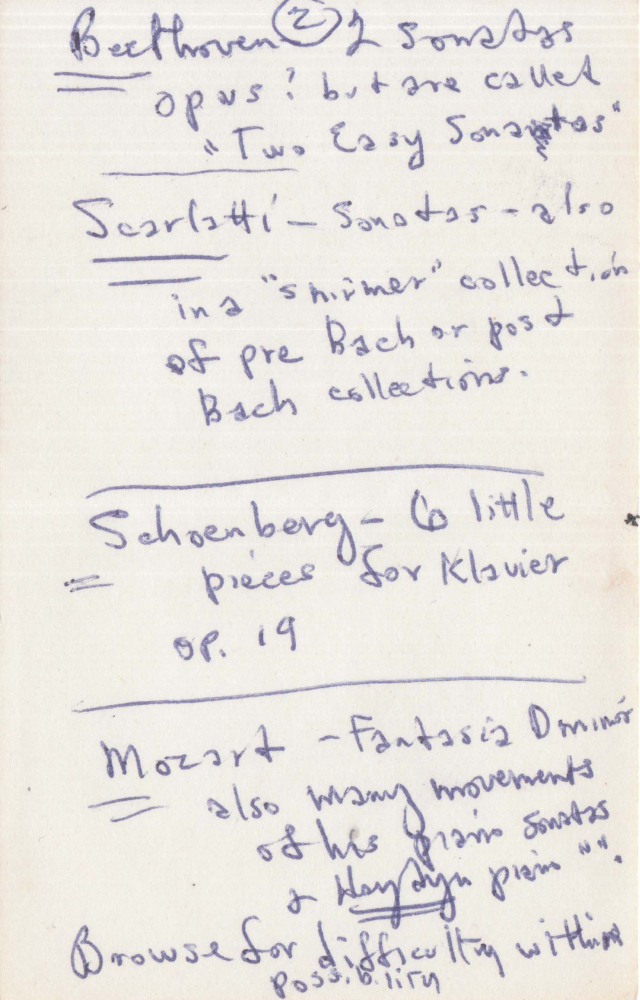 Beethoven ② 2 sonatas
opus? but are called
"Two Easy Sonatas"
Scarlatti - Sonatas - also
in a "shirmer" collection
of pre Bach or post
Bach collections.
Schoenberg - 6 little
pieces for Klavier
op. 19
Mozart - Fantasia D minor
also many movements
of his piano sonatas
& Haydyn piano " ".
Browse for difficulty within
possibility